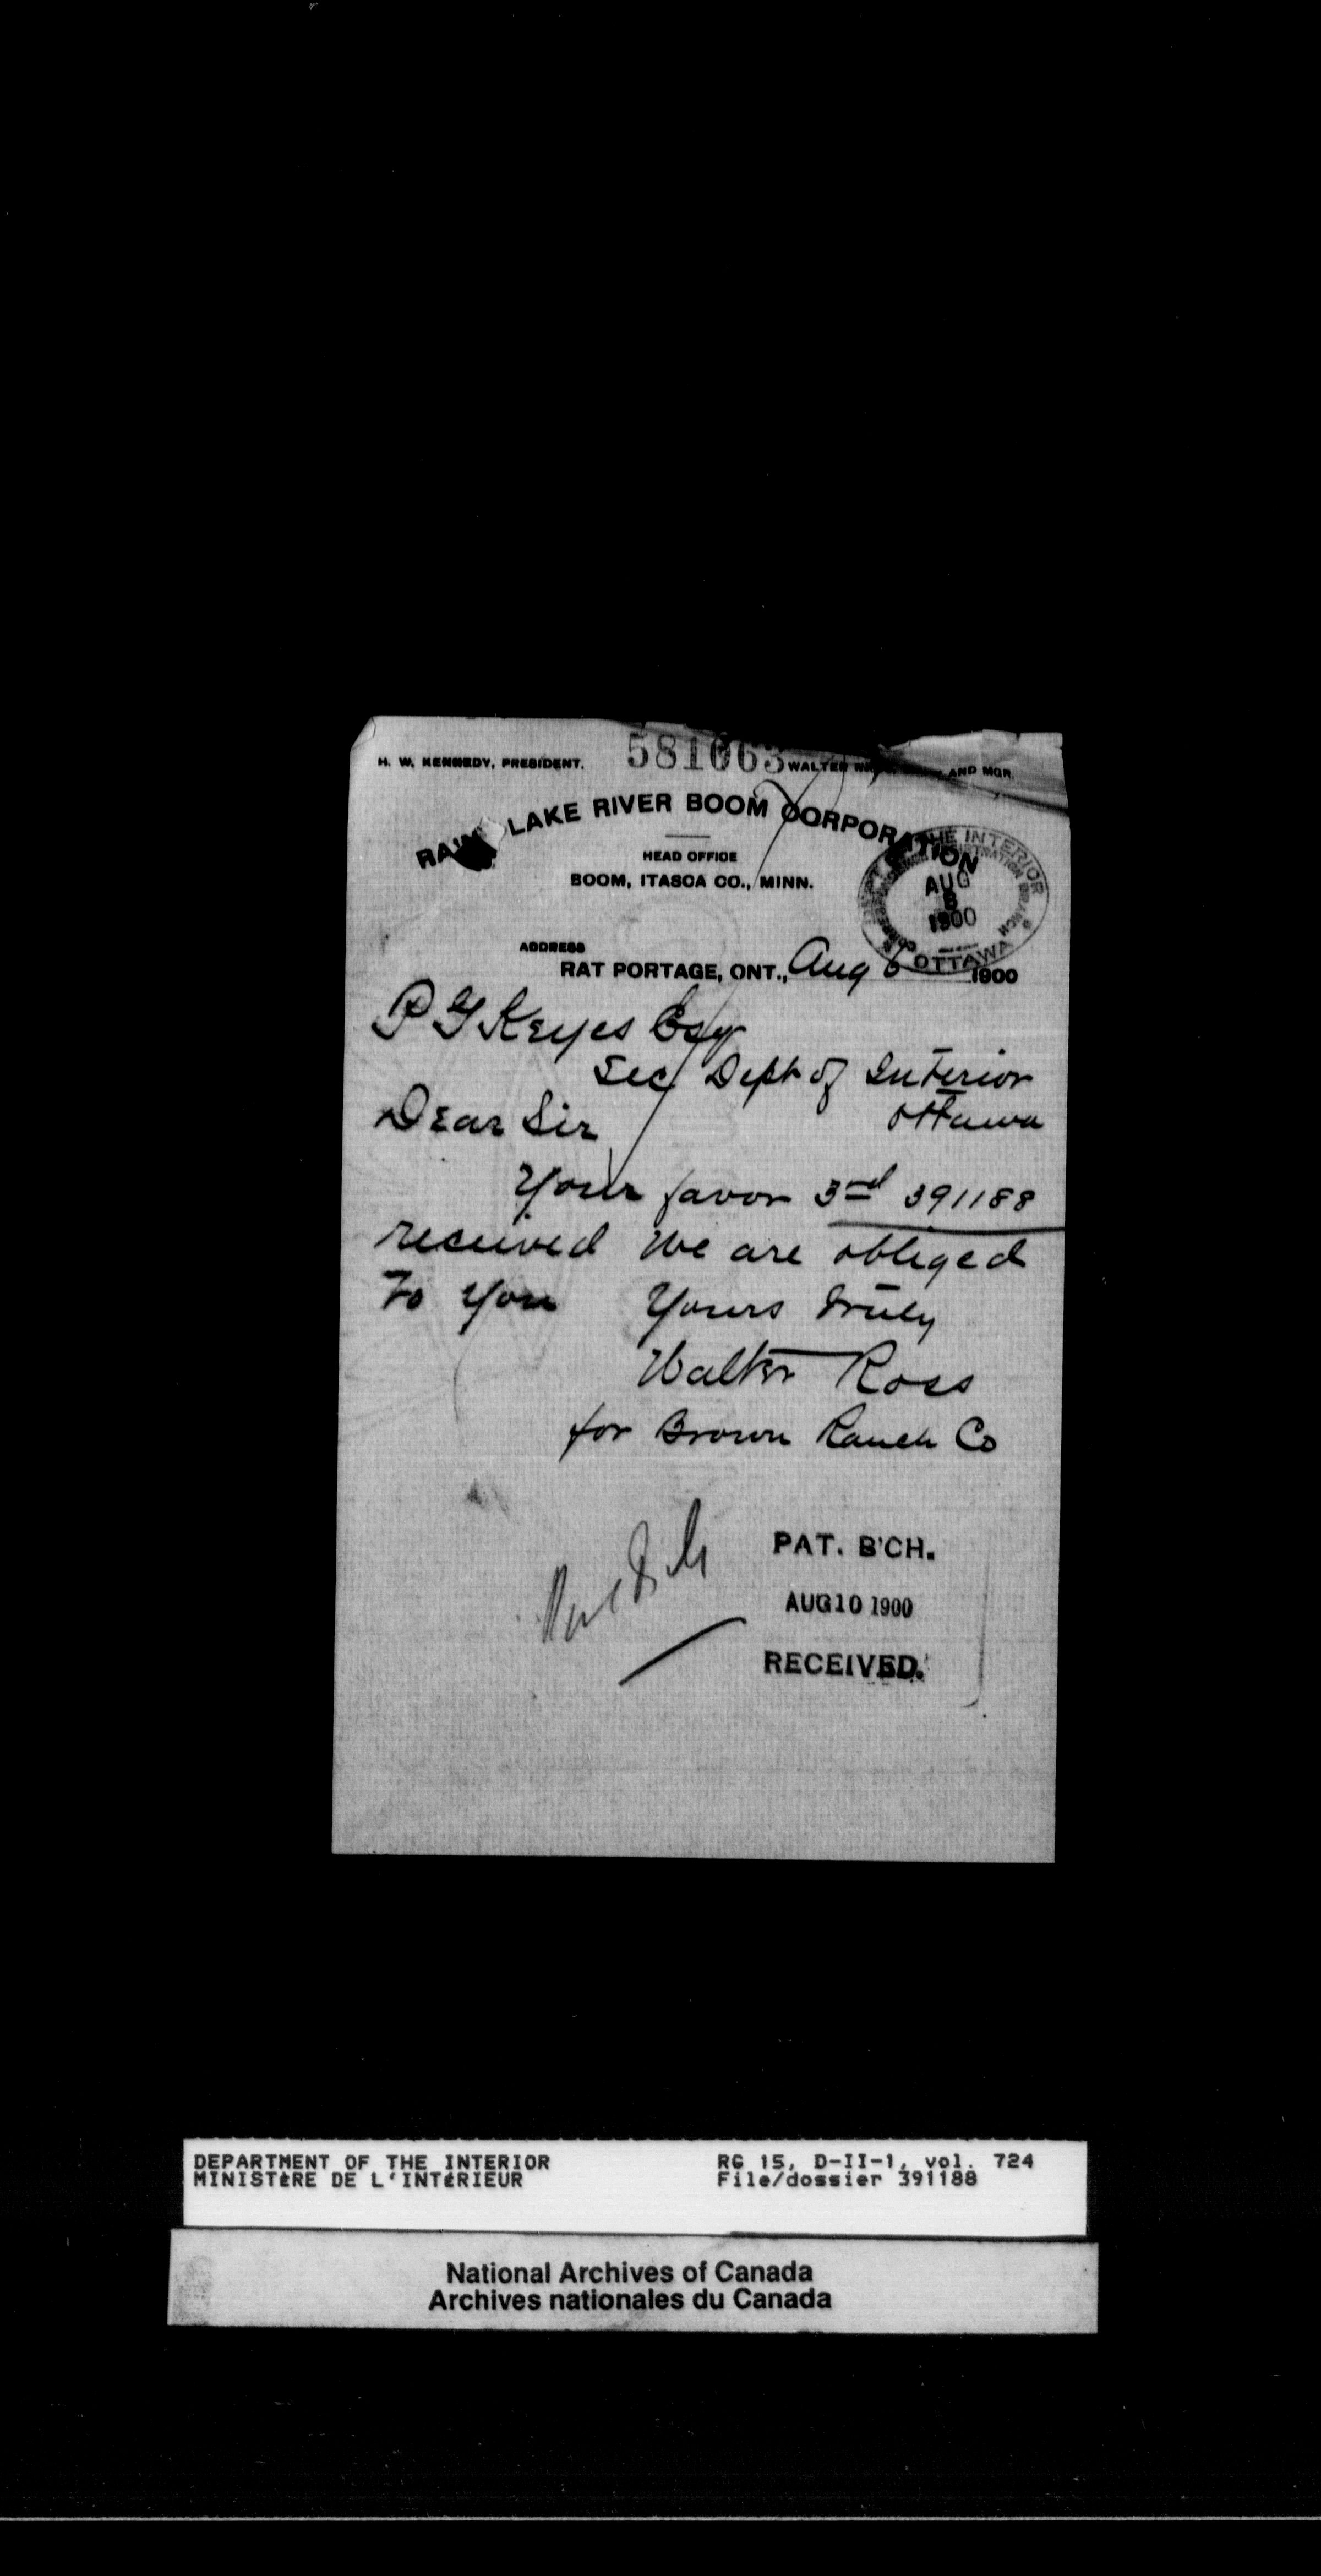 H. W. KENNEDY, PRESIDENT.
581063
WALTER AND MGR.
RAINY LAKE RIVER BOOM CORPORATION
HEAD OFFICE
BOOM, ITASCA CO., MINN.
DEPT OF THE INTERIOR
AUG
8
1900
OTTAWA
ADDRESS
RAT PORTAGE, ONT., Aug 6 1900
P G Keyes Esq
Sec Dept of Interior
Ottawa
Dear Sir
Your favor 3rd 391188
received We are obliged
To you Yours truly
Walter Ross
for Brown Ranch Co
PAT. B'CH.
AUG 10 1900
RECEIVED.
DEPARTMENT OF THE INTERIOR
MINISTÈRE DE L'INTÉRIEUR
RG 15, D-II-1, vol. 724
File/dossier 391188
National Archives of Canada
Archives nationales du Canada